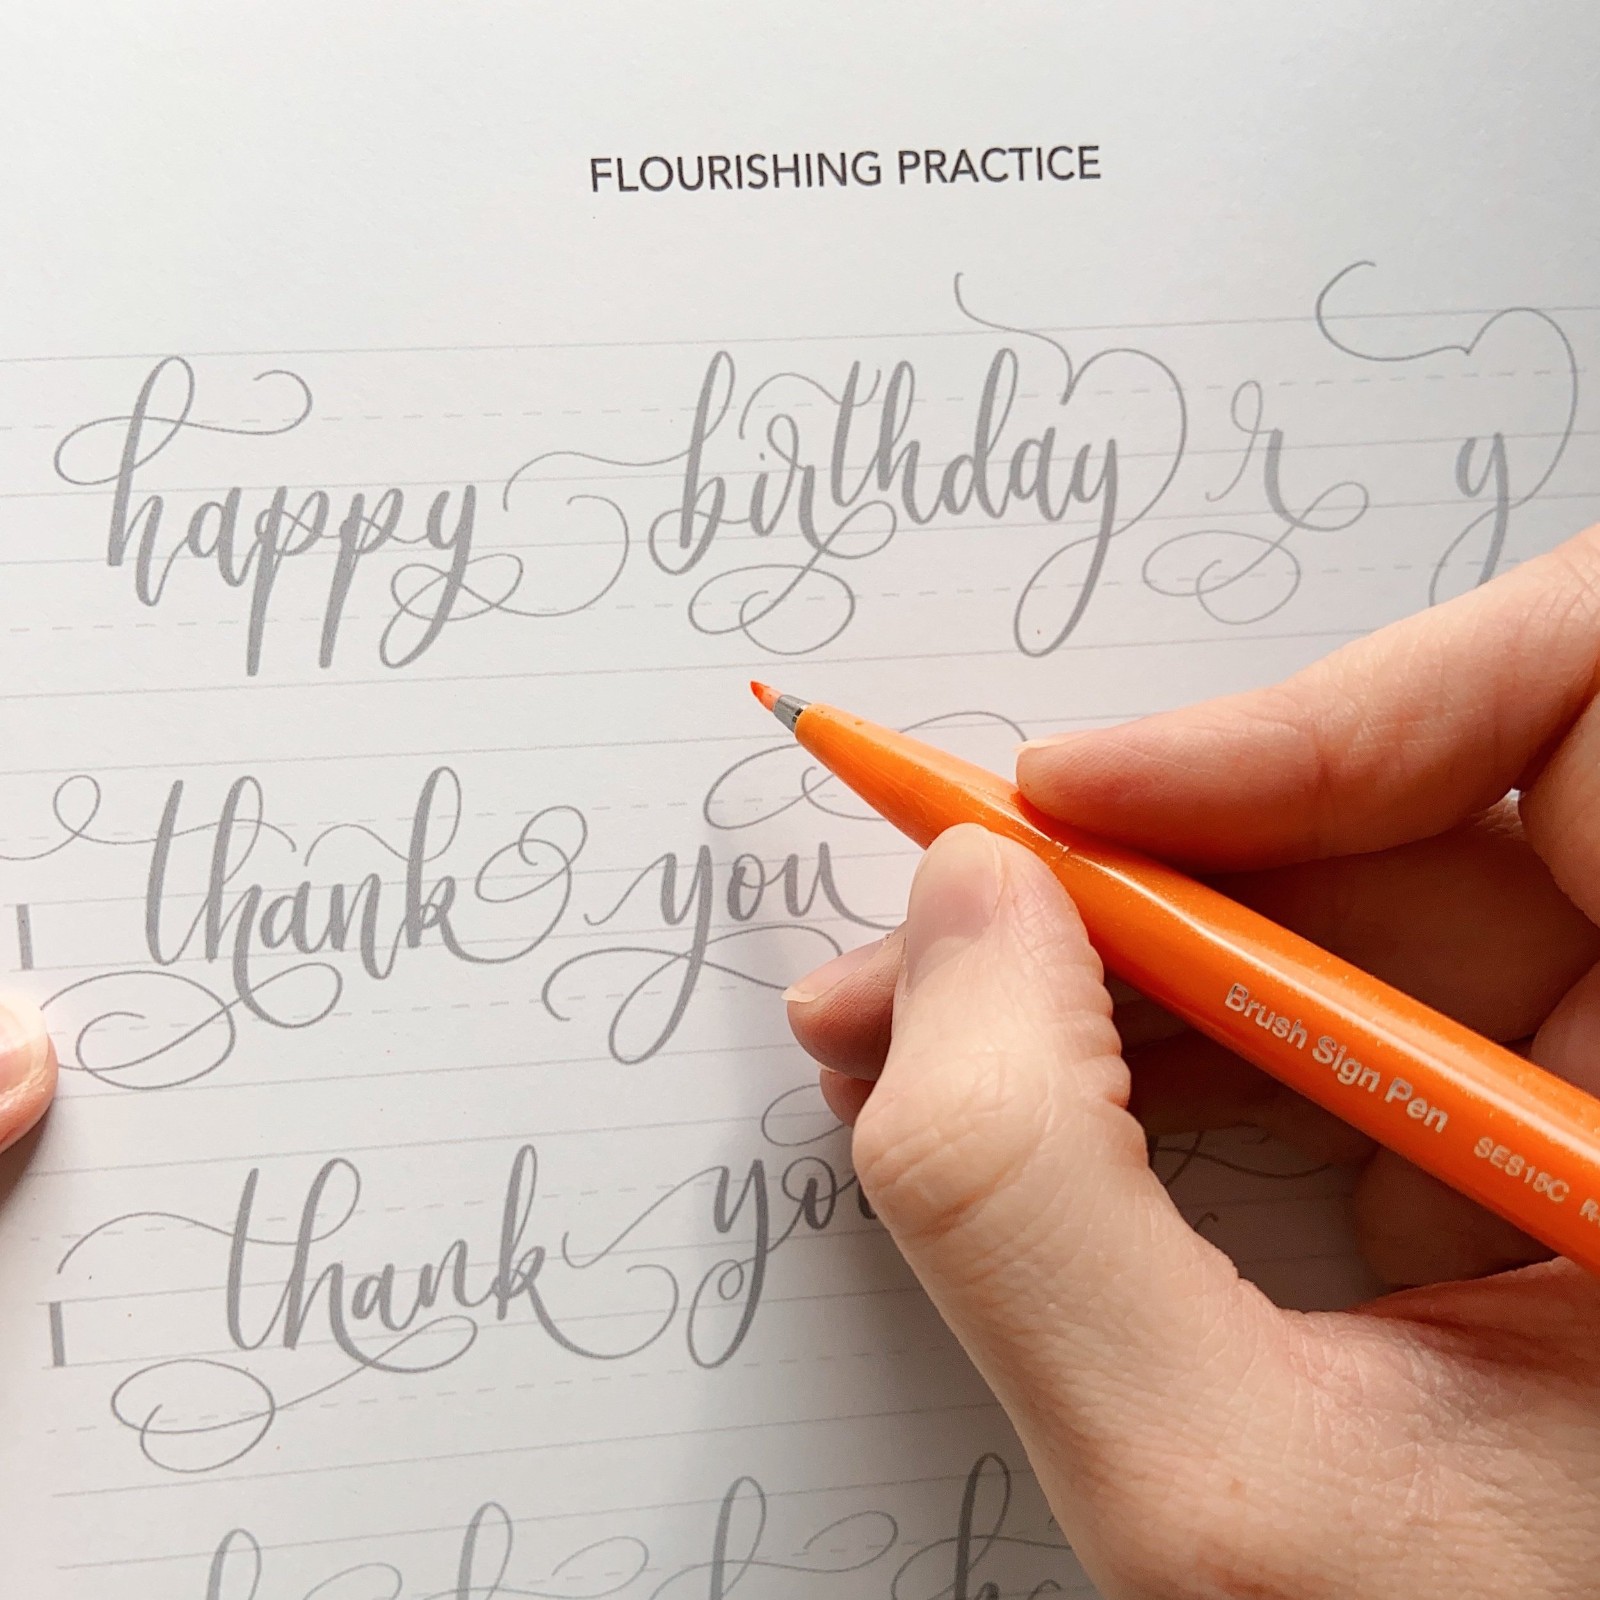 FLOURISHING PRACTICE
happy birthday r y
thank you
thank you
Brush Sign Pen SES15C